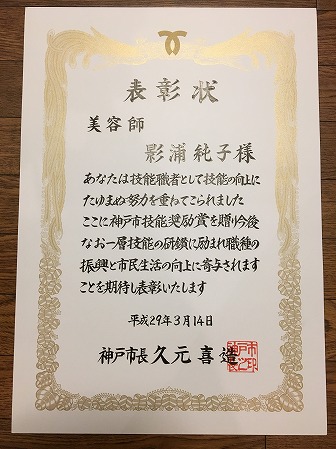 表彰状
美容師
影浦純子様
あなたは技能職者として技能の向上に
たゆまぬ努力を重ねてこられました
ここに神戸市技能奨励賞を贈り今後
なお一層技能の研鑽に励まれ職種の
振興と市民生活の向上に寄与されます
ことを期待し表彰いたします
平成29年3月14日
神戸市長 久元喜造